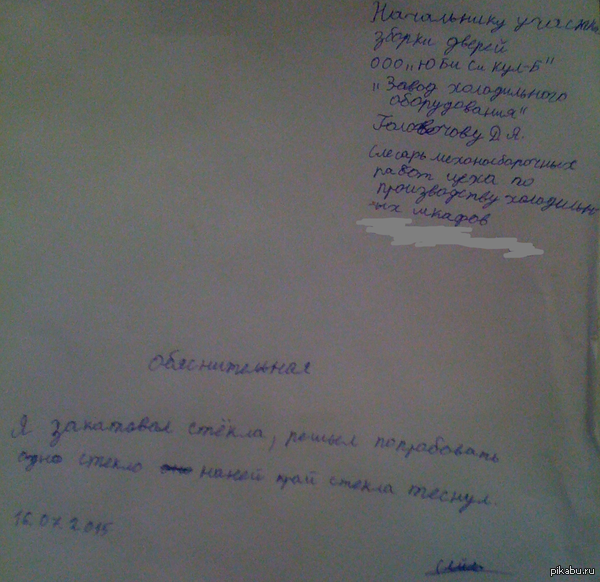 Начальнику участка
зборки дверей
ООО "Ю Би Си кул-Б"
"Завод холодильного
оборудования"
Головочову Д.Я.
Слесарь механосборочных
работ цеха по
производству холодильн
ых шкафов
Обяснительная
Я закатовал стёкла, решыл попрабовать
одно стекло край стекла теснул.
16.07.2015
pikabu.ru